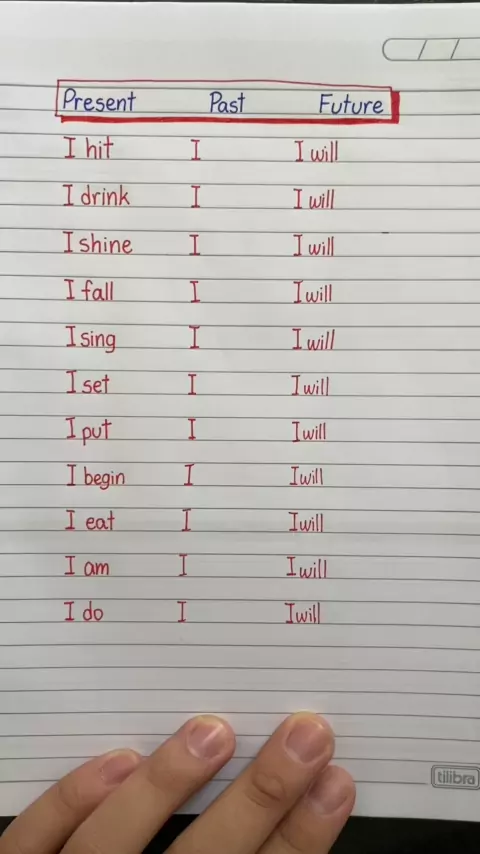 Present Past Future
I hit I I will
I drink I I will
I shine I I will
I fall I I will
I sing I I will
I set I I will
I put I I will
I begin I I will
I eat I I will
I am I I will
I do I I will
tilibra